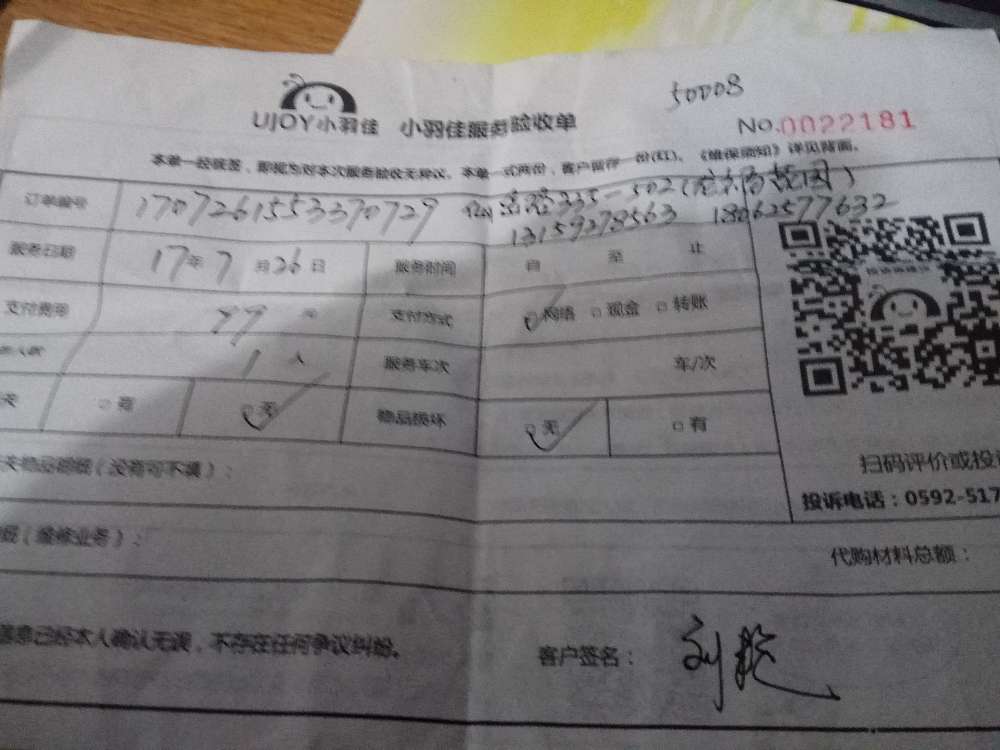 50008
UJOY小羽佳 小羽佳服务验收单 No.0022181
本单一经账签，即视为对本次服务验收无异议。本单一式两份，客户留存一份(红)。《维保须知》详见背面。
订单编号 1707261553370729 335-502
13159278563 18062577632
服务日期 17年7月26日 服务时间 自 至 止
支付费用 77 元 支付方式 网络 现金 转账
1人 服务车次 车/次
有 无 物品损坏 无 有
物品明细（没有可不填）：
扫码评价或投
投诉电话：0592-517
（维修业务）：
代购材料总额：
信息已经本人确认无误，不存在任何争议纠纷。
客户签名：刘